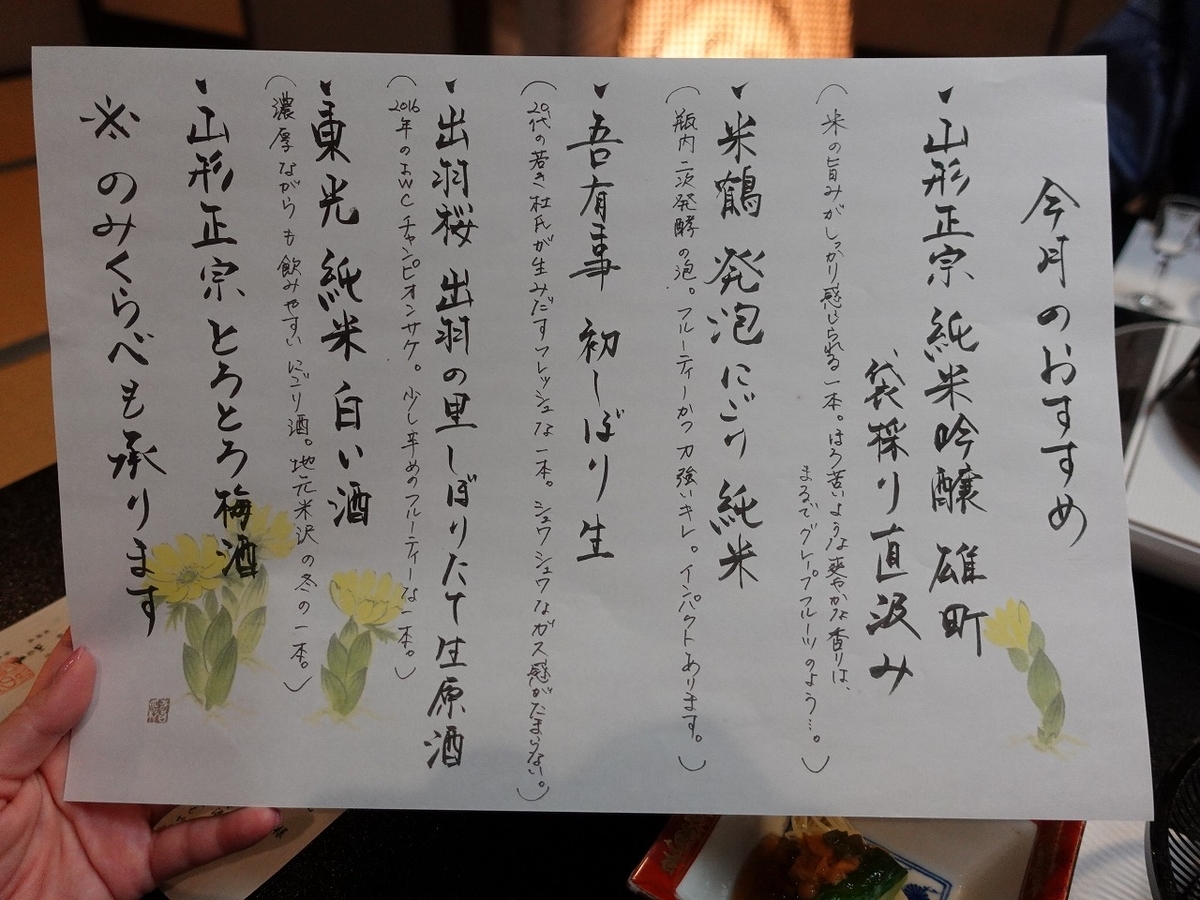 今月のおすすめ
・山形正宗 純米吟醸 雄町
袋採り直汲み
(米の旨みがしっかり感じられる一本。ほろ苦いような爽やかな香りは、
まるでグレープフルーツのよう…。)
・米鶴 発泡にごり 純米
(瓶内二次発酵の泡。フルーティーかつ力強いキレ。インパクトあります。)
・吾有事 初しぼり 生
(20代の若き杜氏が生みだすフレッシュな一本。シュワシュワなガス感がたまらない。)
・出羽桜 出羽の里しぼりたて生原酒
(2016年のIWCチャンピオンサケ。少し辛めのフルーティーな一本。)
・東光 純米 白い酒
(濃厚ながらも飲みやすいにごり酒。地元米沢の冬の一本。)
・山形正宗とろとろ梅酒
※のみくらべも承ります